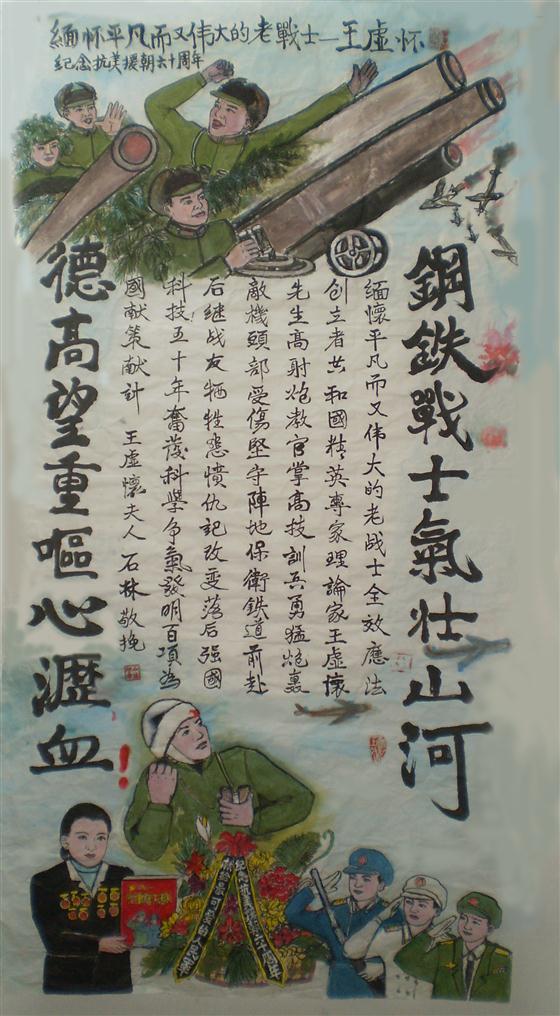 緬怀平凡而又伟大的老戰士—王虚怀
纪念抗美援朝六十周年
鋼鉄戰士氣壮山河
緬懷平凡而又伟大的老战士全效應法
创立者共和國精英專家理論家王虚懷
先生高射炮教官掌高技訓兵勇猛炮裏
敵機頭部受傷堅守陣地保衛鉄道前赴
后继战友牺牲悲愤仇記改变落后强國
科技五十年奮發科學争氣發明百項為
國献策献計 王虚懷夫人石林敬挽
德高望重嘔心瀝血！
纪念抗美援朝六十周年